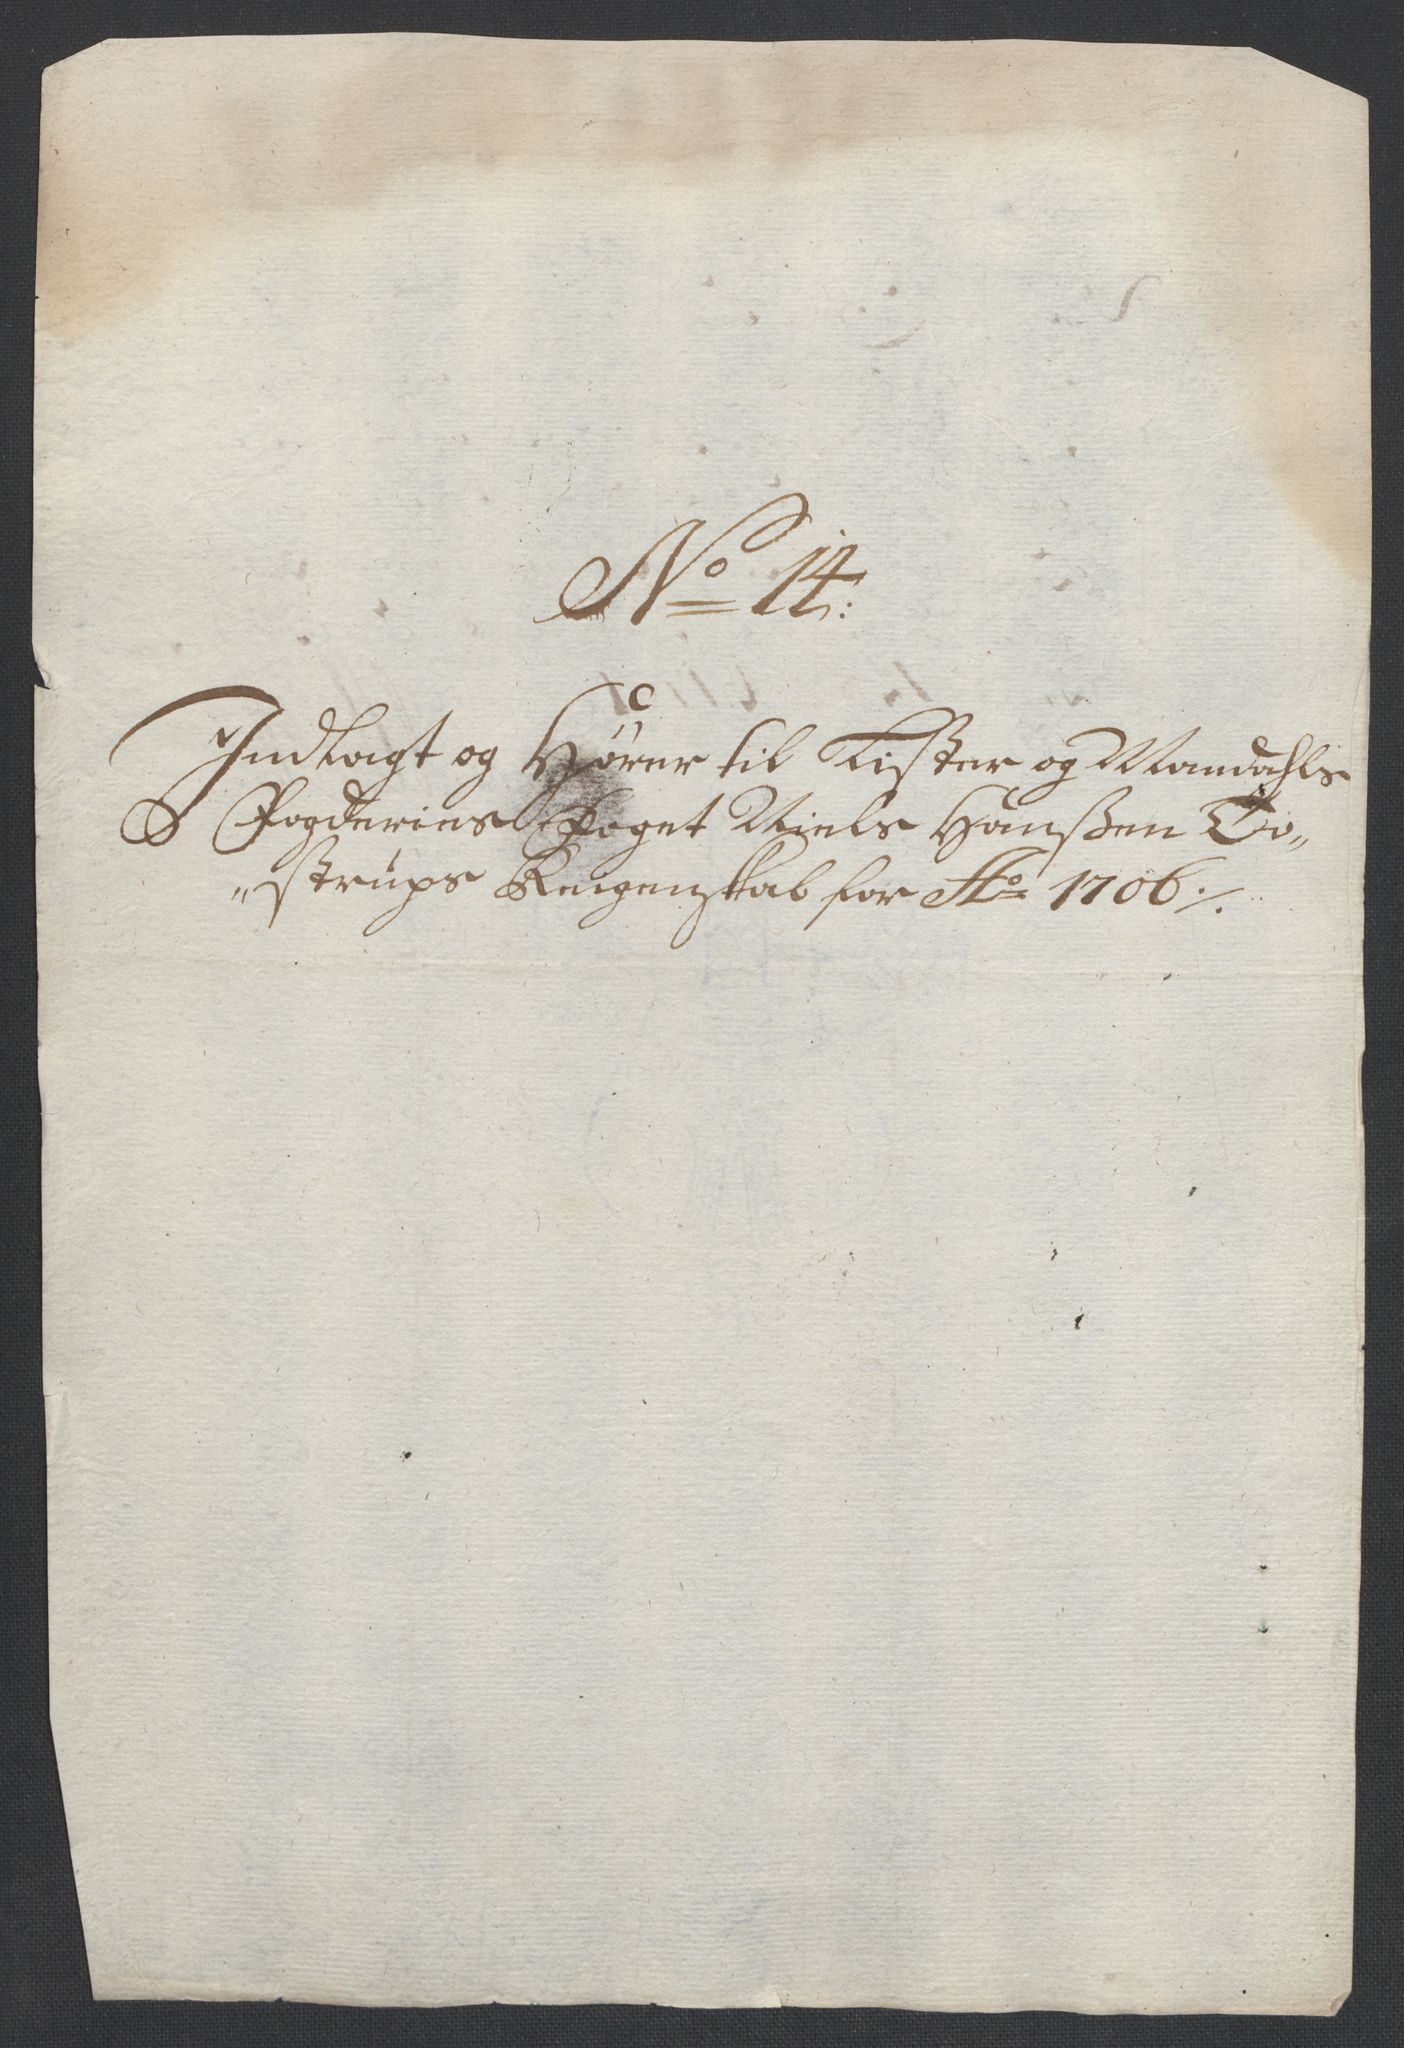 No 14:
Indlagt og Hörer til Lister og Mandahls
Fogderies Foget Niels Hanßen To„
„strups Reigenskab for Ao 1706 ./.